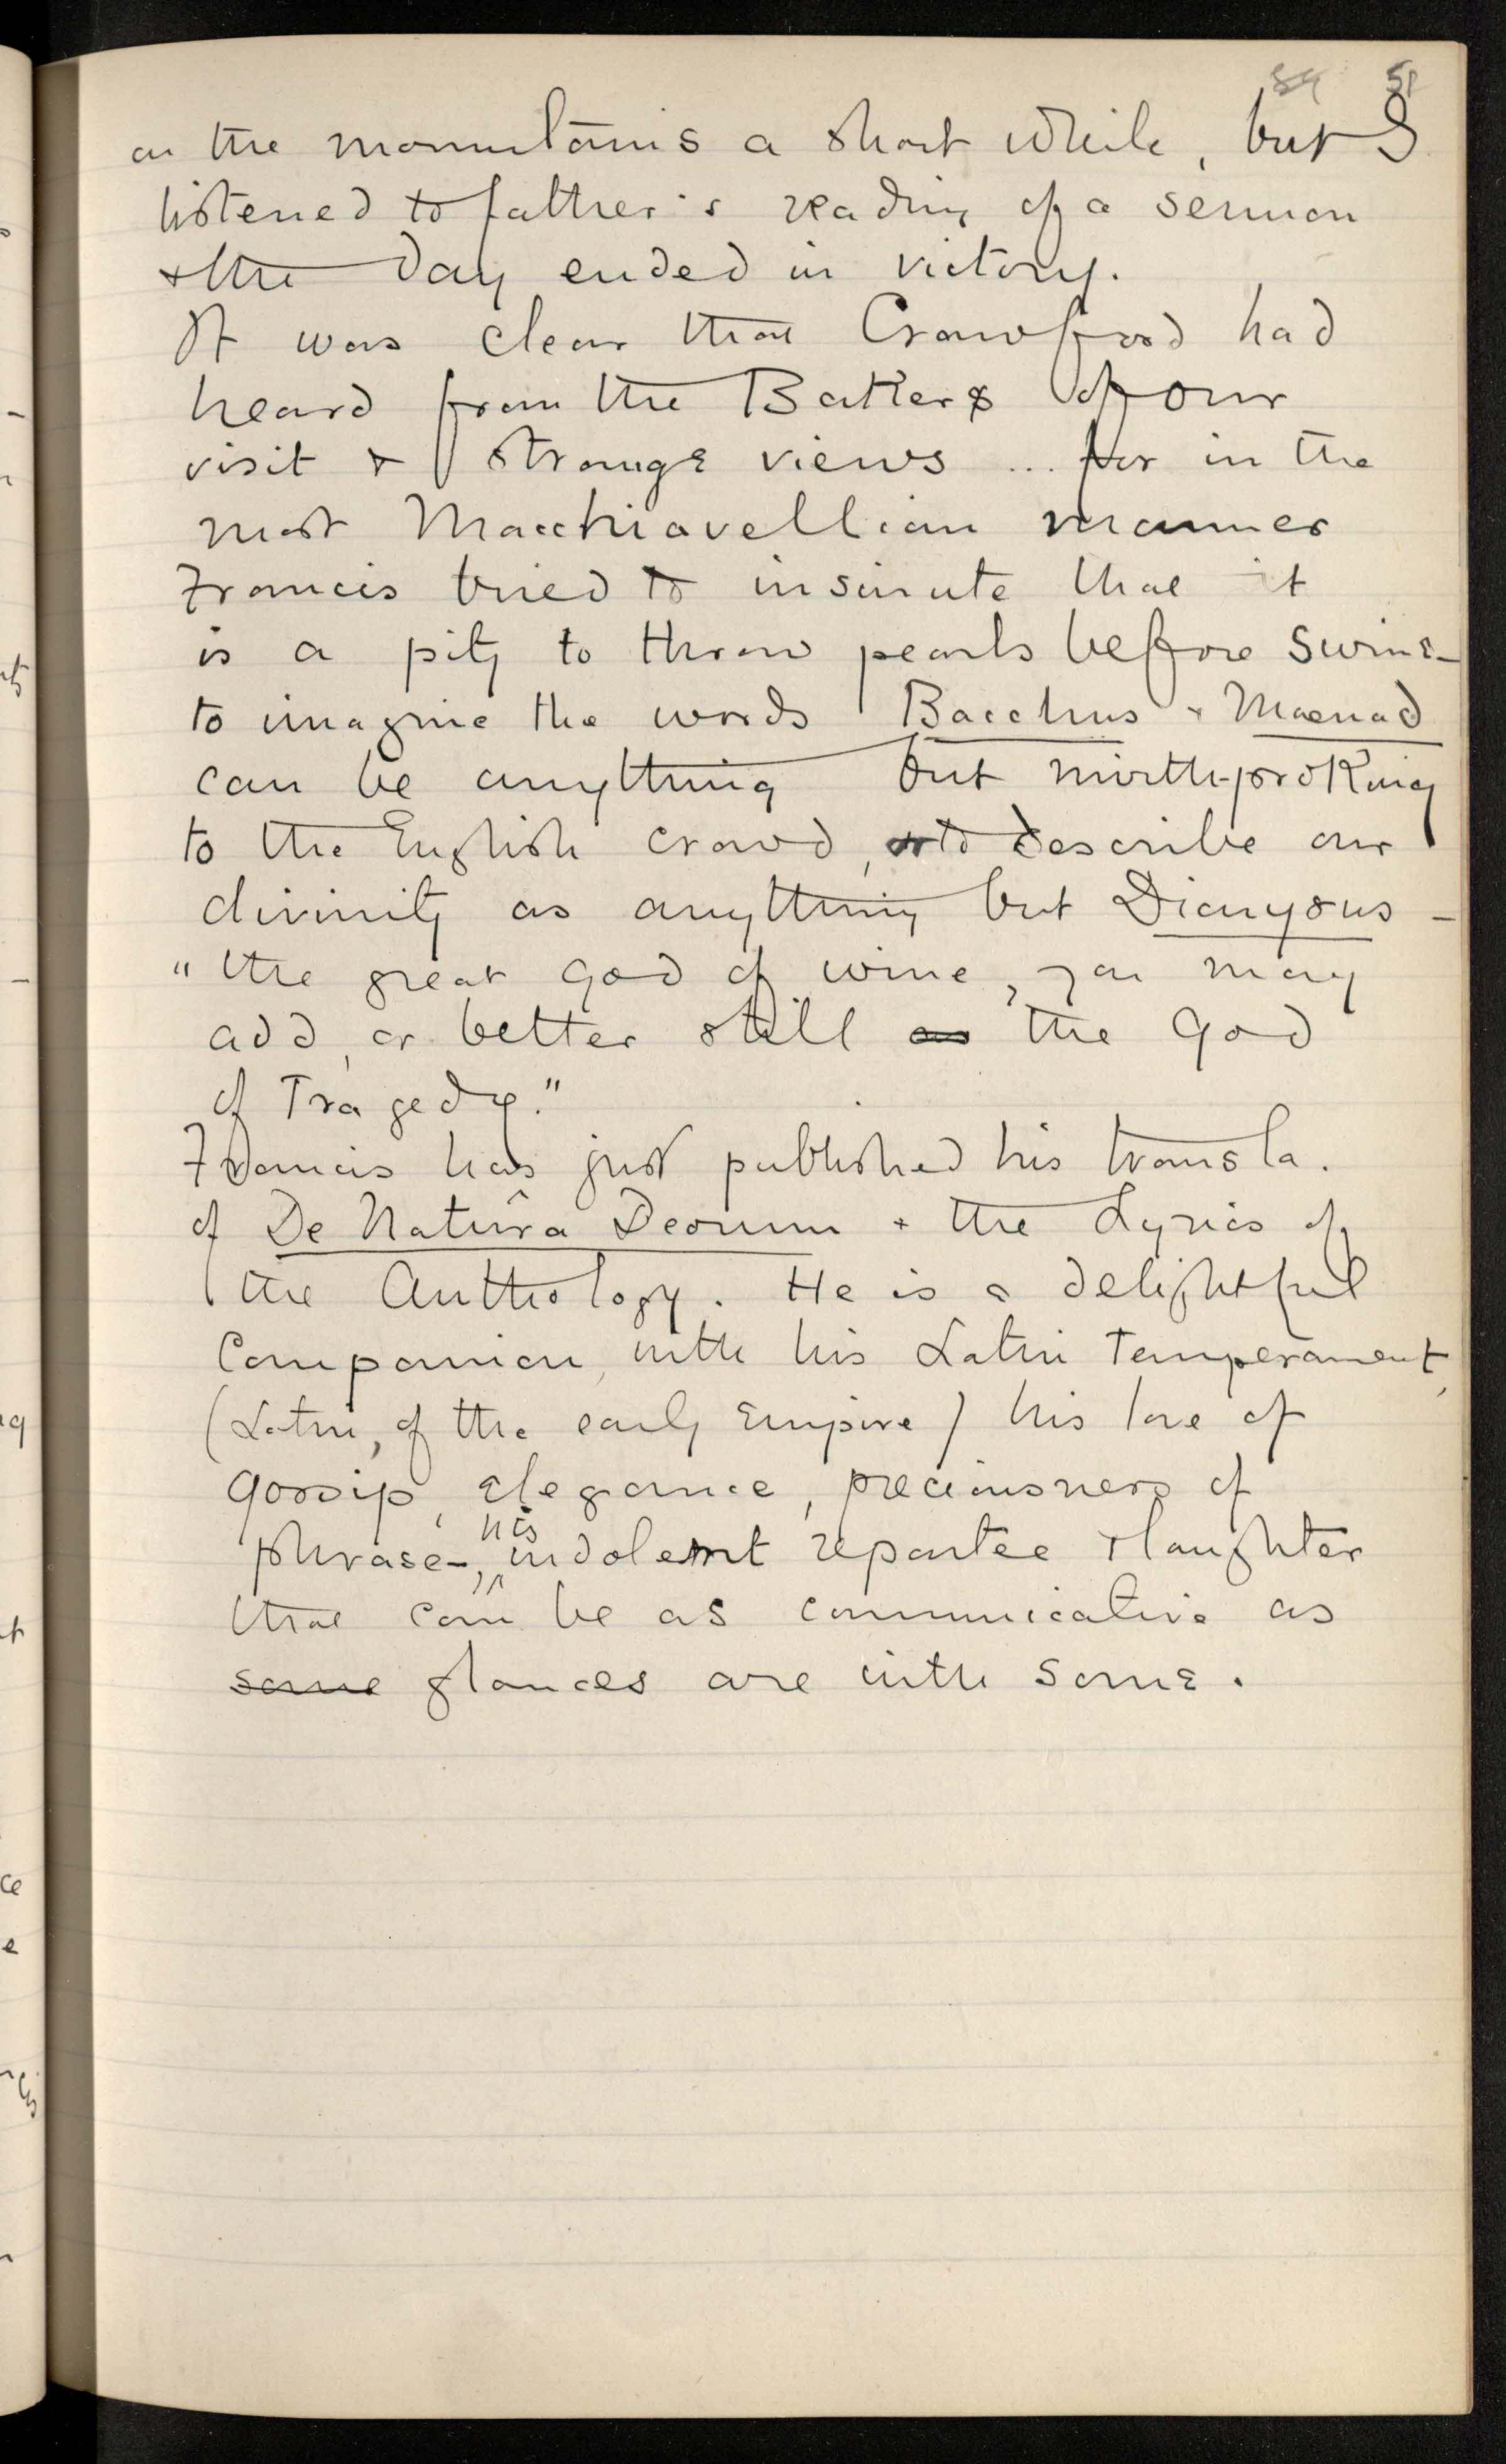 51
on the mountains a short while, but I
listened to father's reading of a sermon
& the day ended in victory.
It was clear that Crawford had
heard from the Bakers of our
visit & strange views ... for in the
most Macchiavellian manner
Francis tried to insinute that it
is a pity to throw pearls before swine –
to imagine the words Bacchus & Maenad
can be anything but mirth-proking
to the English crowd, or to describe our
divinity as anything but Dionysus –
"the great god of wine, you may
add, or better still as the God
of Tragedy."
Francis has just published his transla.
of De Naturâ Deorum & the Lyrics of
the Anthology. He is a delightful
Companion, with his Latin Temperament,
(Latin, of the early Empire) his love of
gossip, elegance, preciousness of
phrase –, his indolent repartee & laughter
that can be as communicative as
some glances are with some.